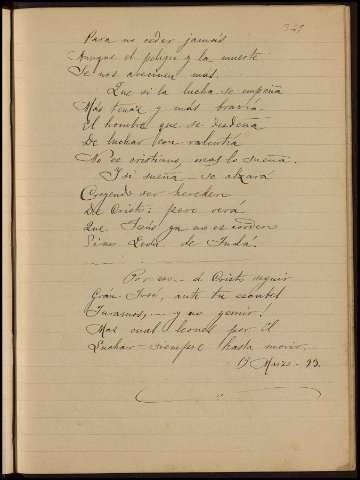 329
Para no ceder jamás
Aunque el peligro y la muerte
Se nos avecinen mas.
Que si la lucha se empeña
Mas tenaz y mas bravia
El hombre que se desdeña
De luchar con valentia
No es cristiano, mas lo sueña.
Y si sueña se alzará
Creyendo ser heredero
De Cristo; pero verá
Que Jesús ya no es cordero
Sino Leon de Judá.
Por eso á Cristo seguir
Gran José, ante tu
Juramos, y no gemir!
Mas cual leones por El
Luchar siempre hasta morir.
19 Marzo - 93.